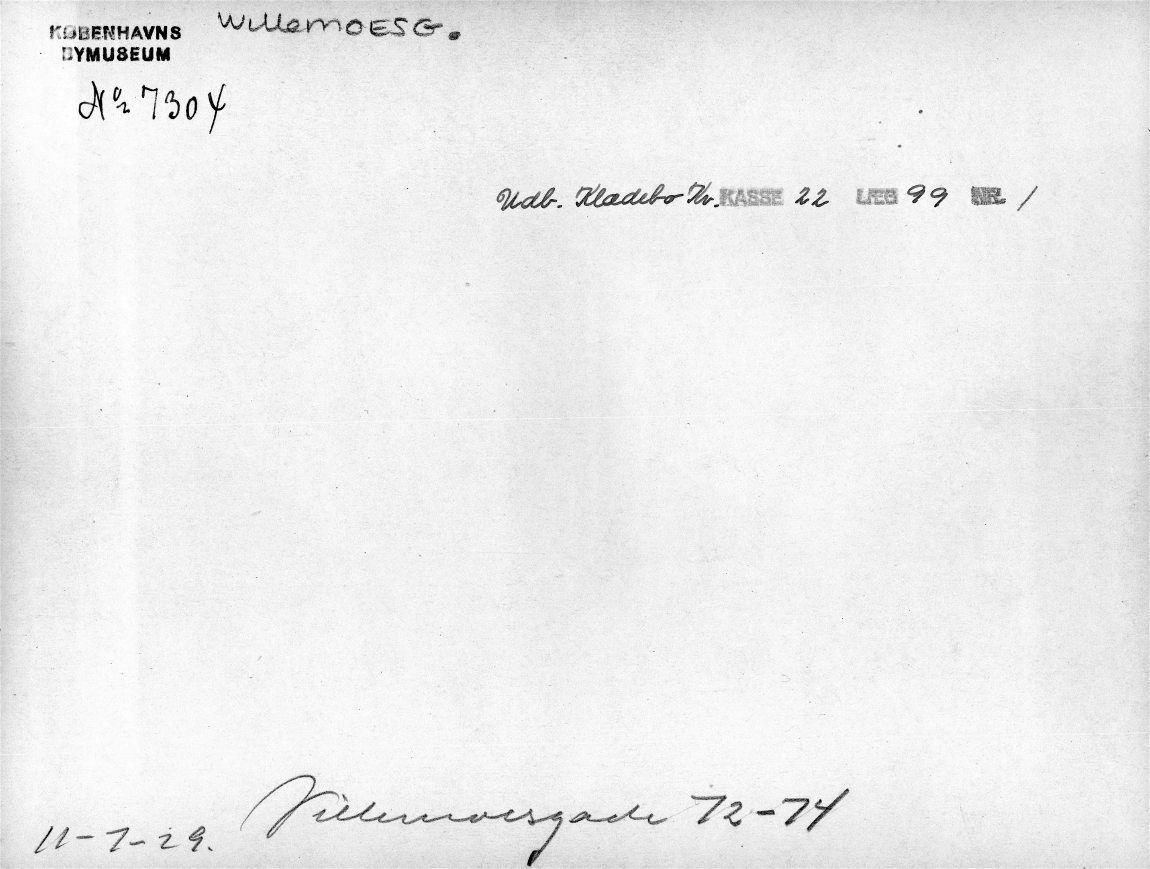 KØBENHAVNS
BYMUSEUM
WillemoESG.
No 7304
Udb. Klædebo Kv. KASSE 22 LÆG 99 NR. 1
Villemoesgade 72-74
11-7-29.